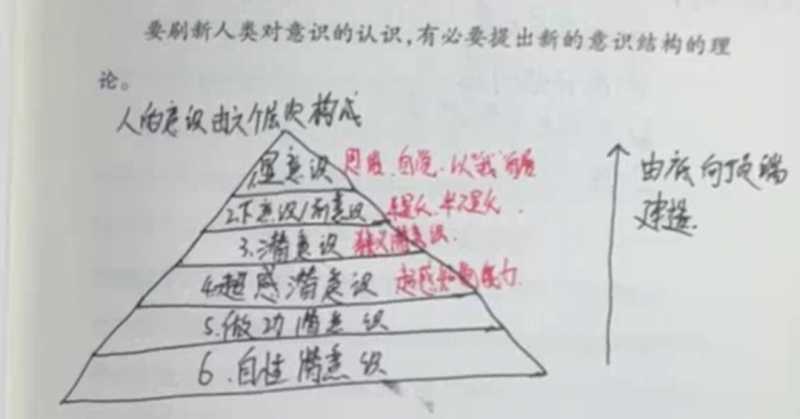 要刷新人类对意识的认识,有必要提出新的意识结构的理
论。
人的意识由六个层次构成
显意识 自觉.以"我"
2.下意识/前意识 半
3.潜意识 狭义潜意识.
4.超感潜意识 超感知觉能力.
5.做功潜意识
6.自性潜意识
由底向顶端
建造.